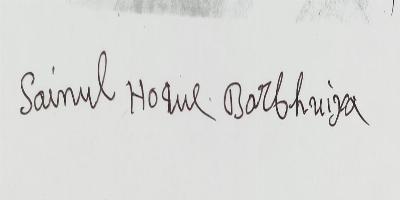 Sainul Hoque Barbhuiya